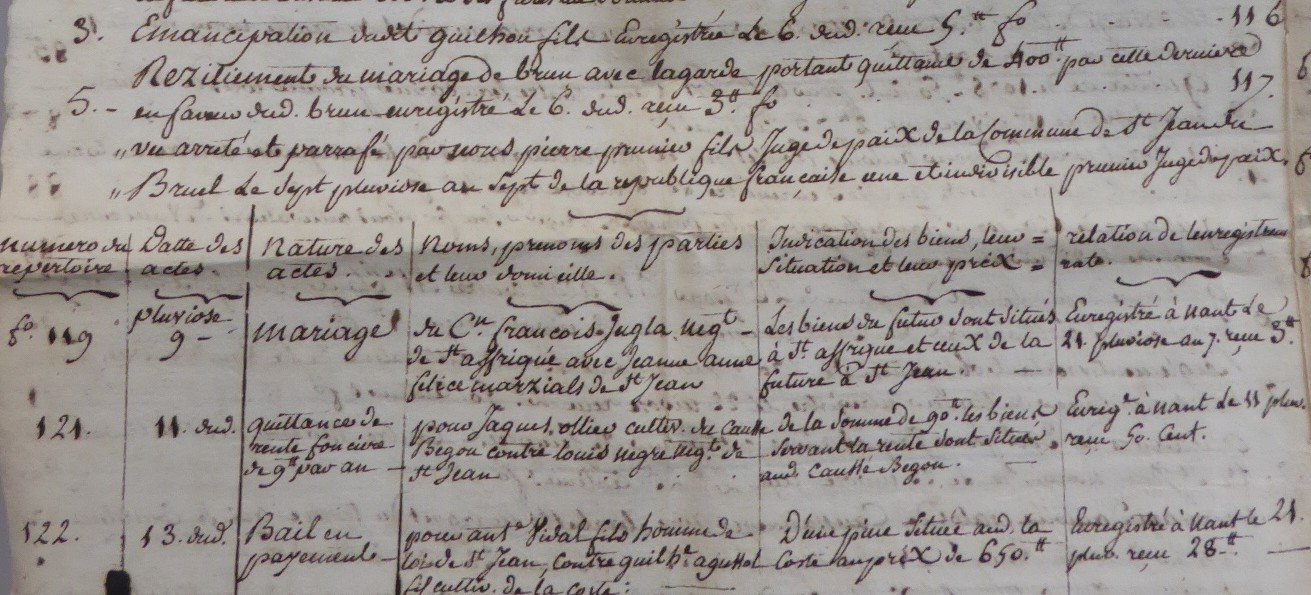 3. Emancipation dudit guilhou fils Enregistrée Le 6. dud. reçu 5.tt fo 116
Reziliement du mariage de brun avec lagarde portant quittance de 400tt par cette derniere
5. - en faveur dud. brun enregistré Le 6. dud. reçu 3tt fo 117.
„ vu arreté et parrafé par nous pierre prunier fils Juge de paix de la Commune de St Jean du
„ Bruel Le Sept pluviose an Sept de la republique française une et indivisible prunier Juge de paix.
numero du Datte des nature des noms, prenoms des parties Indication des biens, leur = relation de lenregistrem
repertoire actes. actes et leur domicille. Situation et leur prix = rate.
fo. 119 pluviose 9 - mariage du Cn. francois Jugla negt - Les biens du futur Sont situés Enregistré à nant Le
de St affrique avec Jeanne anne à St. affrique et ceux de la 21 pluviose an 7. reçu 3tt
felice marzials de St Jean future à St Jean. -
121. 11. dud. quittance de pour Jaques ollier cultivr. du Causse de la Somme de 90tt les biens Enregt. à nant Le 11 pluv.
rente fonciere Begon contre louis negre negt. de servant la rente sont situés reçu 50. Cent.
de 9tt par an - St Jean aud Causse Begon. -
122. 13. dud. Bail en pour ant. Vidal fils homme de D'une pine située aud. la Enregistré à nant le 21.
payement - loi de St Jean, contre guilhe. agussol Coste au prix de 650.tt pluv. reçu 28tt. -
fils cultiv. de la coste.